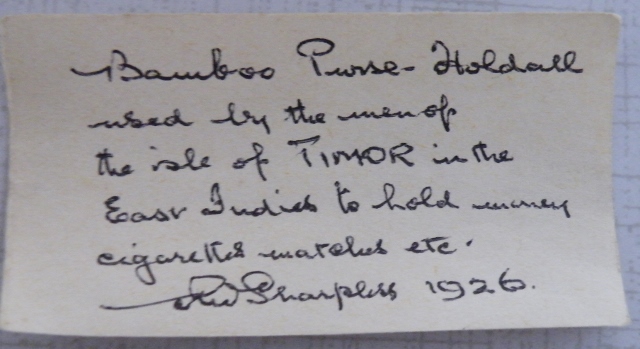 Bamboo Purse-Holdall
used by the men of
the isle of TIMOR in the
East Indies to hold money
cigarettes matches etc.
Sharpless 1926.